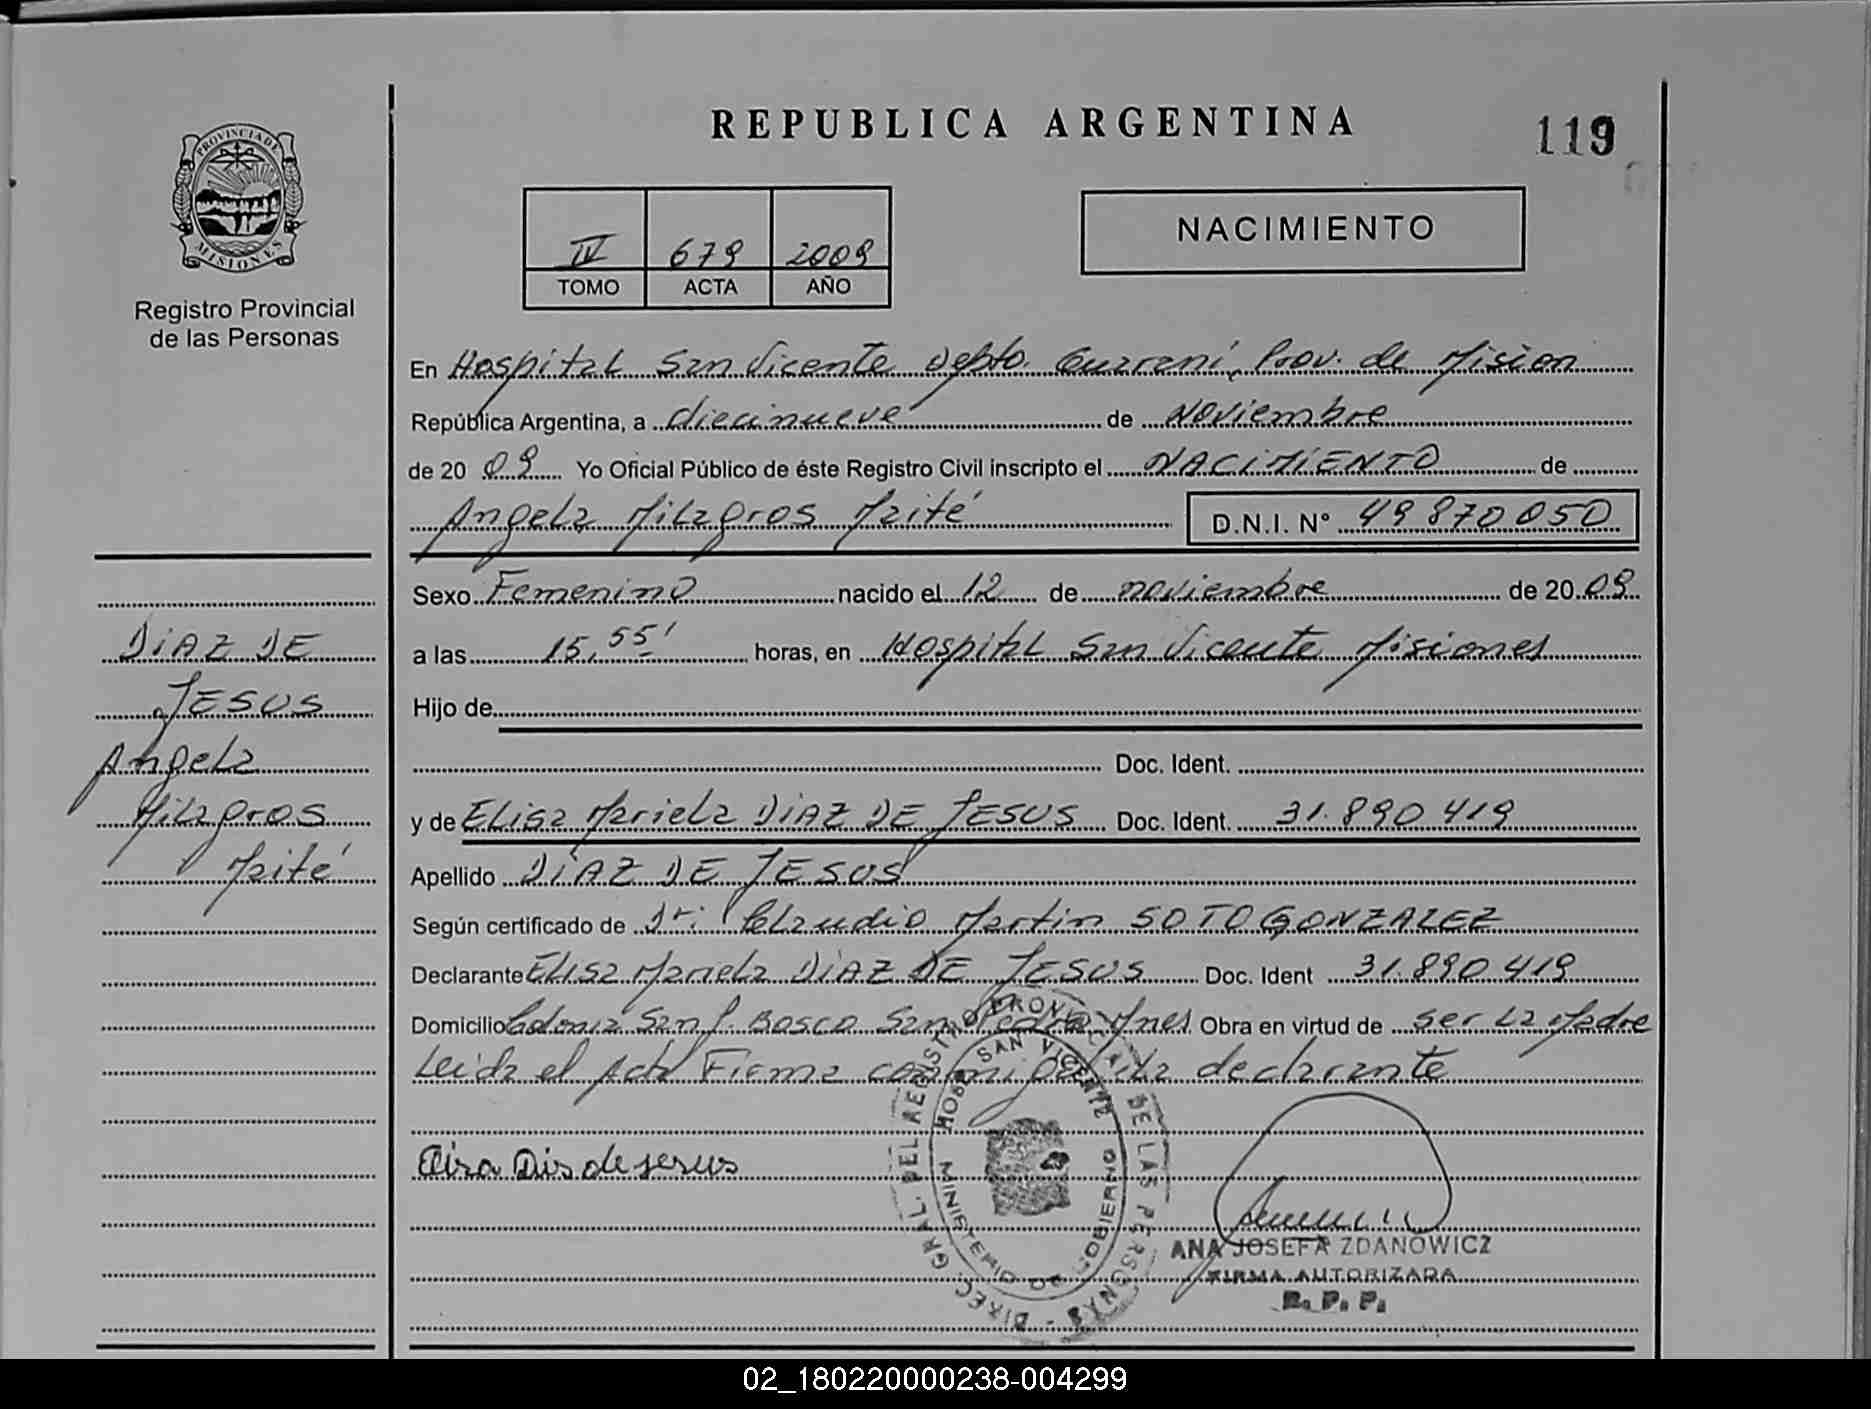 REPUBLICA ARGENTINA
119
PROVINCIA DE
MISIONES
Registro Provincial
de las Personas
IV 679 2009
TOMO ACTA AÑO
NACIMIENTO
En Hospital San Vicente Depto. Guaraní, Prov. de Mision
República Argentina, a diecinueve de Noviembre
de 20 09 Yo Oficial Público de éste Registro Civil inscripto el NACIMIENTO de
Angela Milagros Maité D.N.I. N° 49870050
Sexo Femenino nacido el 12 de noviembre de 20 09
a las 15,55' horas, en Hospital San Vicente Misiones
Hijo de
Doc. Ident.
y de Elisa Mariela DIAZ DE JESUS Doc. Ident. 31.890.419
Apellido DIAZ DE JESUS
Según certificado de Dr: Claudio Martin SOTO GONZALEZ
Declarante Elisa Mariela DIAZ DE JESUS Doc. Ident 31.890.419
Domicilio Colonia San J. Bosco San Pedro Mnes Obra en virtud de ser la Madre
Leida el Acta Firma conmigo la declarante
DIAZ DE
JESUS
Angela
Milagros
Maité
DIREC. GRAL. DEL REGISTRO PROVINCIAL DE LAS PERSONAS
HOSP. SAN VICENTE
MINISTERIO DE GOBIERNO
ANA JOSEFA ZDANOWICZ
FIRMA AUTORIZADA
R. P. P.
02_180220000238-004299